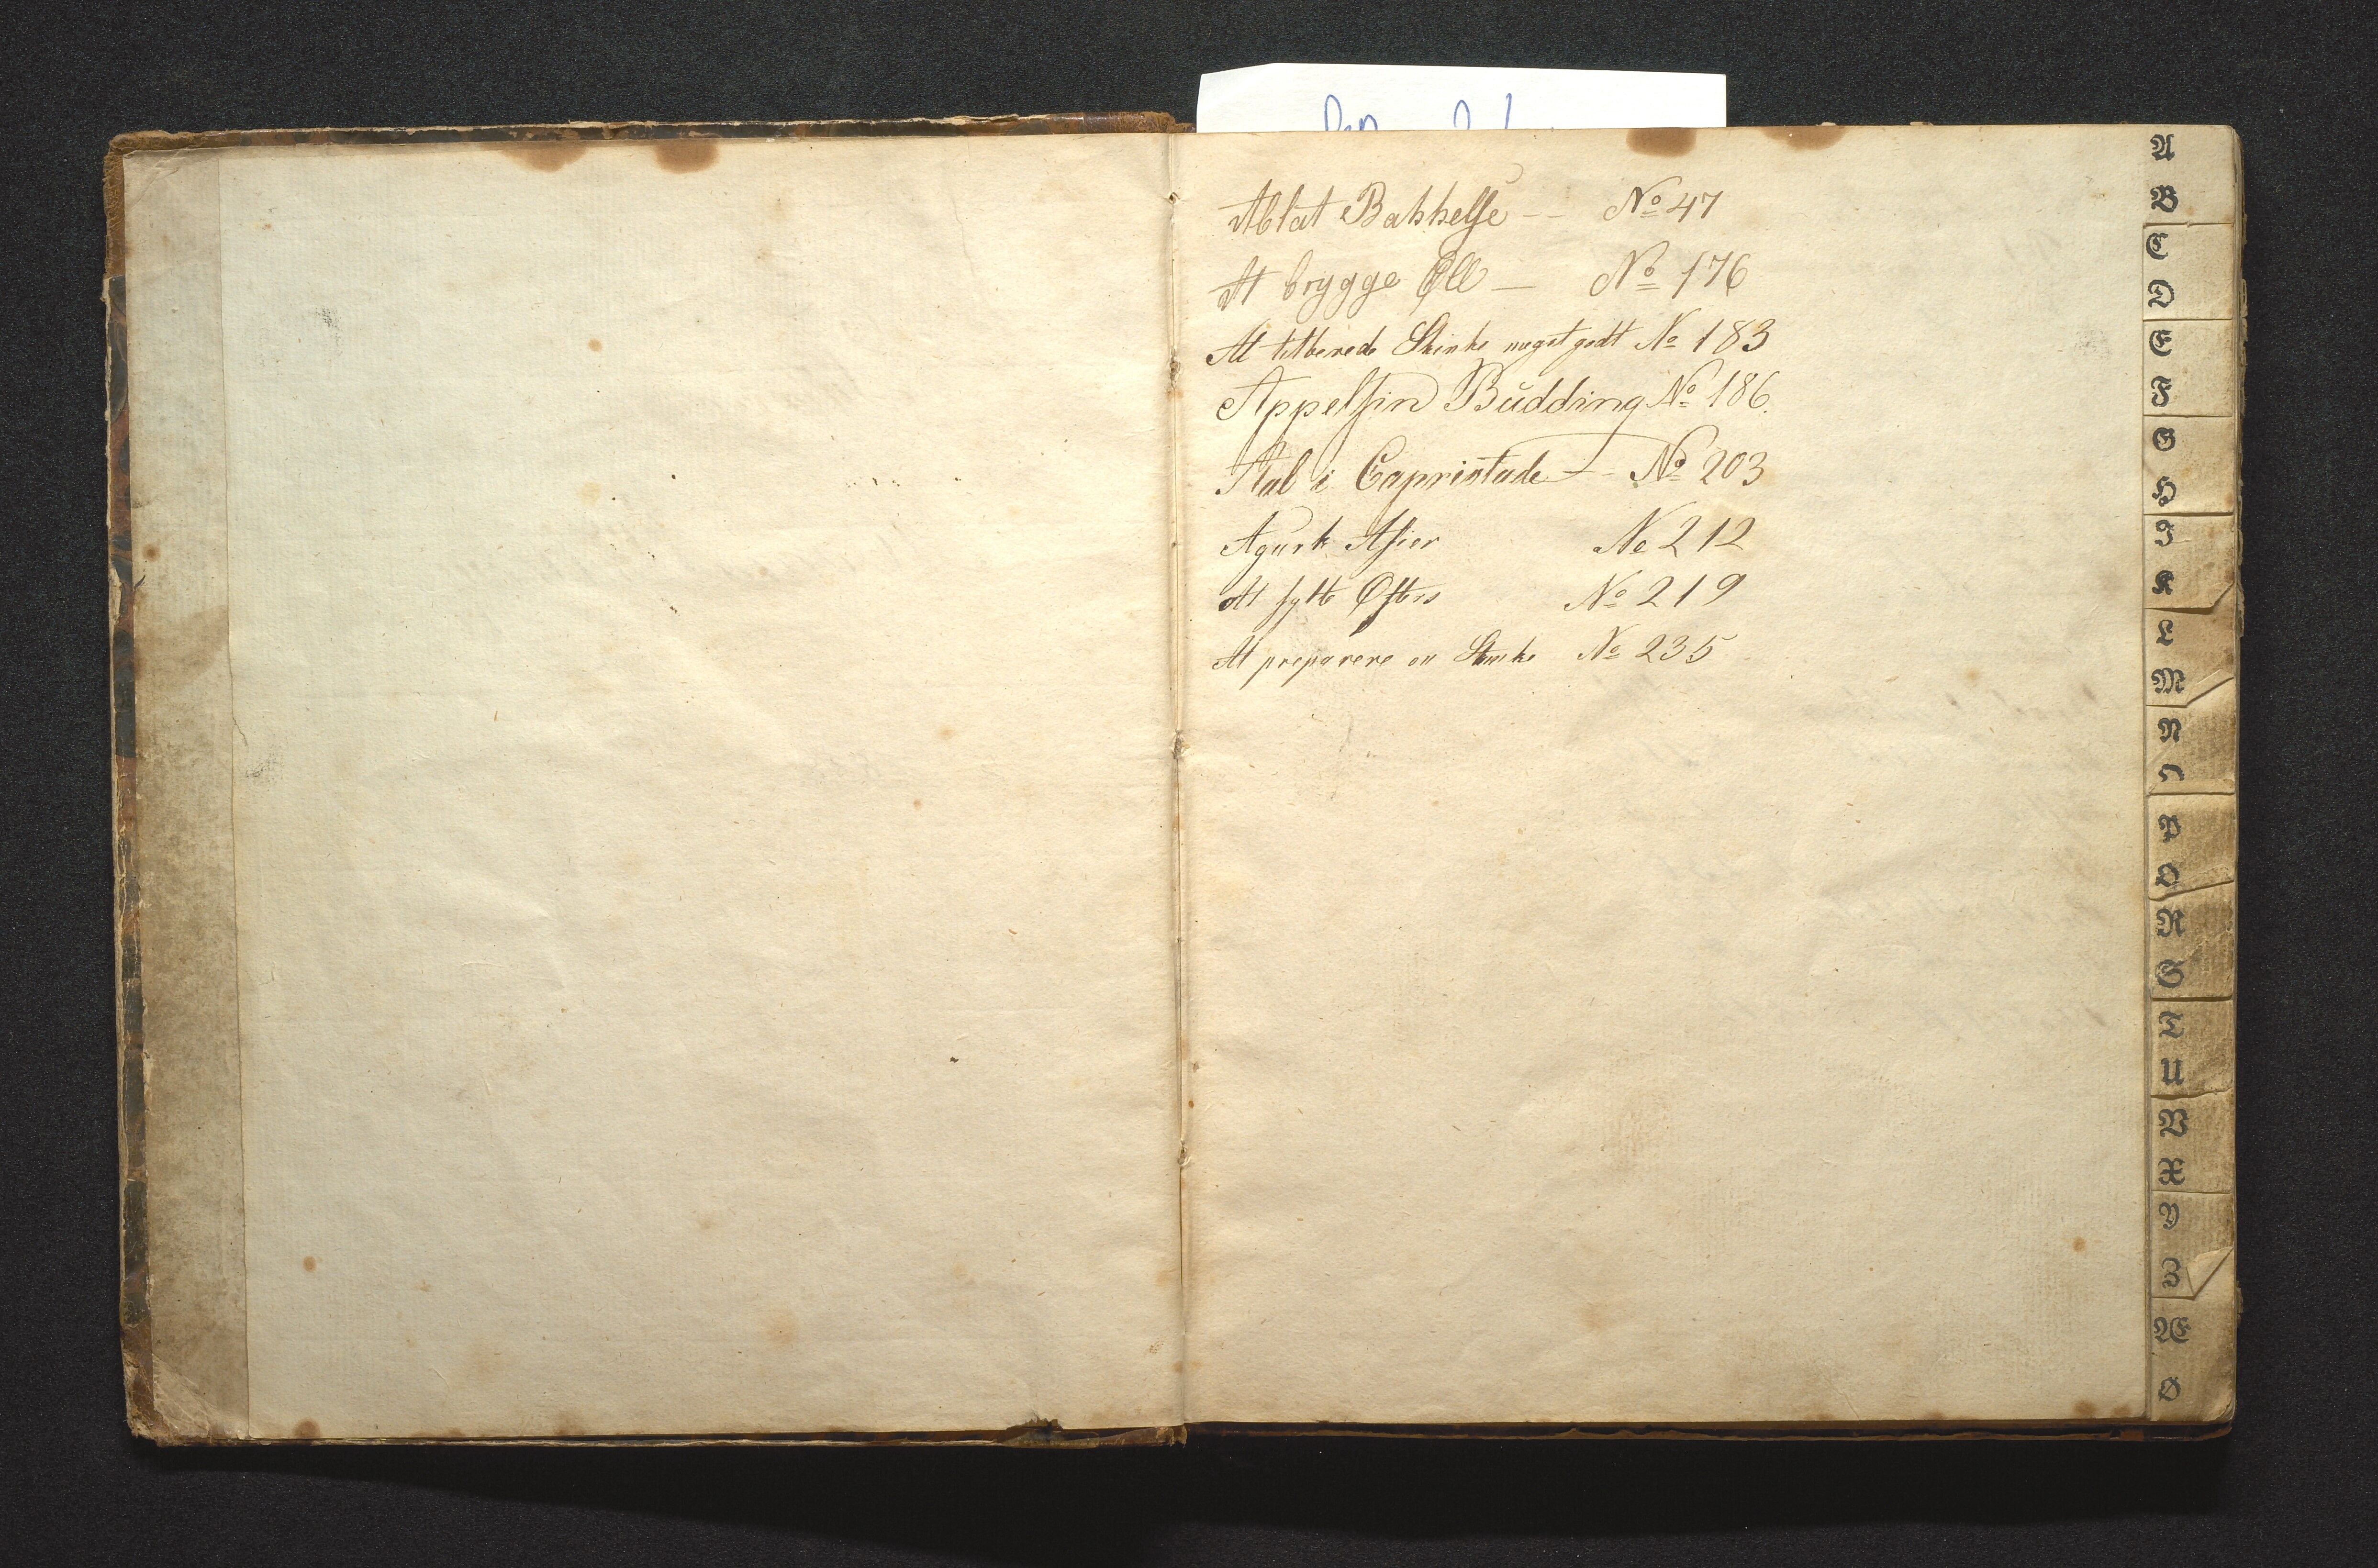 Ablat Bakkelse -- No 47
At brygge Øll — No 176
At tilberede Skinke meget godt No 183
Appelsin Budding No 186.
Aal i Capristade -- No 203
Agurk Asier No 212
At sylte Østers No 219
At preparere en Skinke No 235
A
B
C
D
E
F
G
H
I
K
L
M
N
O
P
Q
R
S
T
U
V
X
Y
Z
Æ
Ø